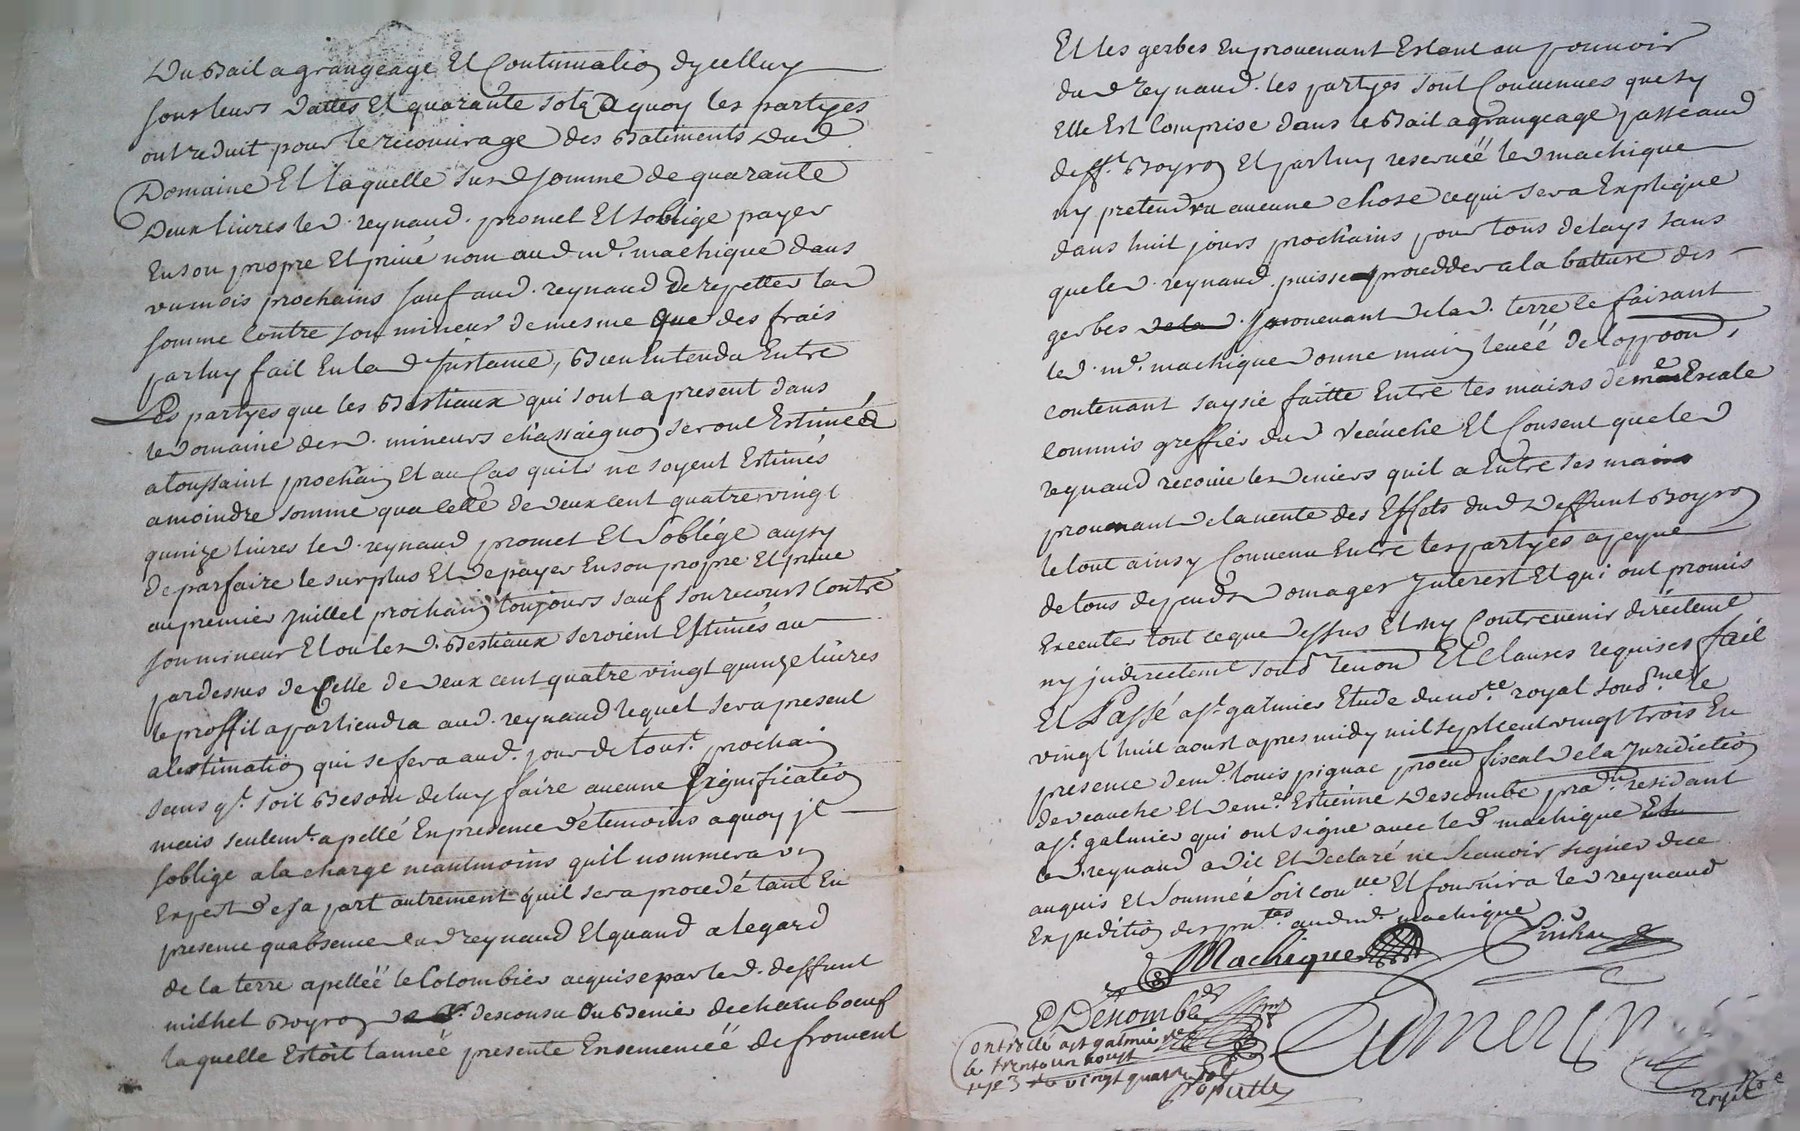 Du Bail a grangeage Et Continuation dycelluy
sous leurs dattes Et quarante sols a quoy les partyes
ont reduit pour le recouurage des Batiments dud
Domaine Et laquelle susd somme de quarante
deux liures led. reynaud. promet Et soblige payer
Enson propre Et priué nom aud mr. machique dans
un mois prochains sauf aud. reynaud de repetter lad
somme Contre son mineur de mesme que des frais
par luy fait En lad Instance, Bien Entendu Entre
Les partyes que les Bestiaux qui sont a present dans
le domaine desd. mineurs chassaignon seront Estimés
a toussaint prochain Et au Cas quils ne soyent Estimés
a moindre somme qua Celle de deux cent quatre vingt
quinze liures led. reynaud promet Et soblige aussy
de parfaire le surplus Et de payer Enson propre Et priué
au premier Juillet prochain toujours sauf son recours Contre
son mineur Et ou lesd. Bestiaux seroient Estimés au
pardessus de Celle de deux cent quatre vingt quinze liures
le proffit apartiendra aud. reynaud lequel sera present
a lestimation qui se fera aud. jour de toust. prochain
sans qt. soit Besoin de luy faire aucune signification
mais seulemt. apellé En presence de temoins a quoy jl
soblige a la charge neantmoins quil nommera un
Expert de sa part autrement quil sera procedé tant En
presence quabsence dud reynaud Et quand a legard
de la terre apelléé le Colombier acquise par led. deffunt
michel Boyron desconsu du Benier de chamboeuf
laquelle Estoit lannéé presente Ensemencéé de froment
Et les gerbes En prouenant Estant au pouuoir
dud reynaud. les partyes sont Conuenues que sy
Elle Est Comprise dans le Bail a grangeage passe aud
defft. Boyron Et par luy reseruéé led machique
ny pretendra aucune chose ce qui sera Expliqué
dans huit jours prochains pour tous delays sans
que led. reynaud. puisse procedder a la batture des
gerbes prouenant de lad. terre le faisant
led. mr. machique donne main leuéé de loppoon,
contenant saysie faitte Entre les mains de me Escale
Commis greffier dud Veauche Et Consent que led
reynaud recoiue les deniers quil a Entre ses mains
prouenant de la uente des Effets dud deffunt Boyron
le tout ainsy Conuenu Entre les partyes a peyne
de tous depends domages Interest Et qui ont promis
Executer tout ce que dessus Et ny Contreuenir directemt
ny jndirectemt Et Clauses requises fait
Et Passé a st. galmier Etude du nore. royal sousne. le
vingt huit aoust apres midy mil sept cent vingt trois En
presence de mr. louis pignac procur fiscal de la Juridiction
de veauche Et de mr. Estienne Descombe residant
a st. galmier qui ont signe avec led machique
led. reynaud a dit Et declaré ne scauoir signer de ce
anquis Et sommé soit conlle Et fournira led reynaud
Expedition des pntes aud mr machique
Machique
Controllé a st galmier
le trente un aoust
vingt quatre sols
royal